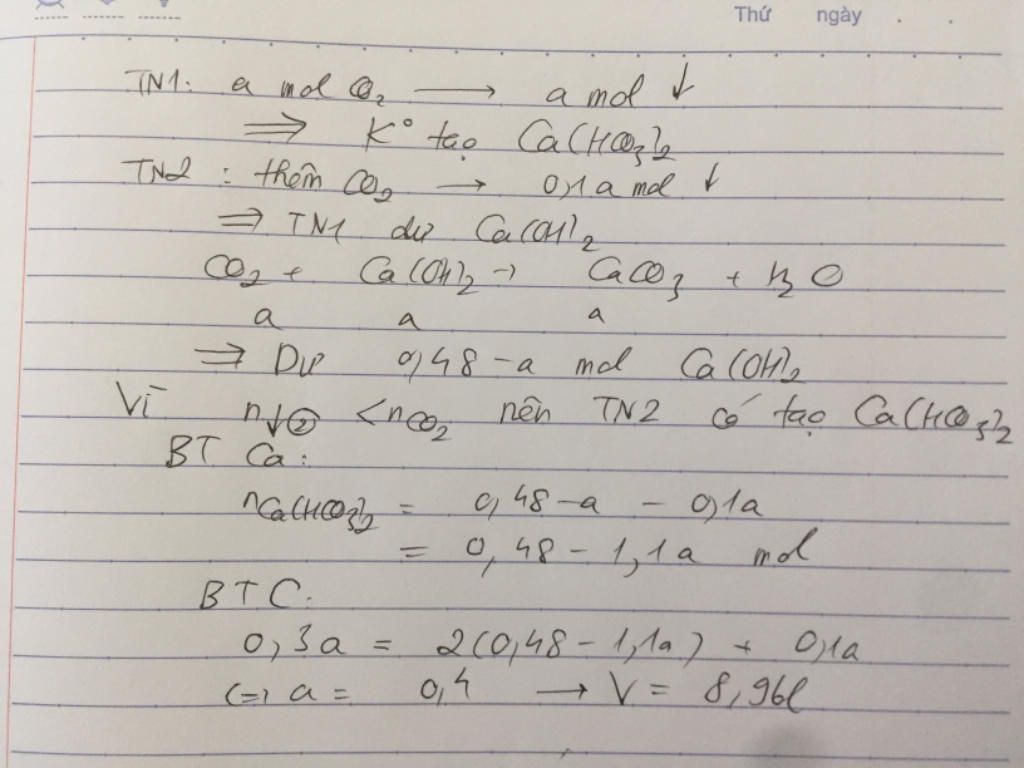 Thứ ngày . .
TN1: a mol CO₂ ⟶ a mol ↓
⟹ K° tạo Ca(HCO₃)₂
TN2 : thêm CO₂ → 0,1a mol ↓
⟹ TN1 dư Ca(OH)₂
CO₂ + Ca(OH)₂ → CaCO₃ + H₂O
a a a
⟹ Dư 0,48 - a mol Ca(OH)₂
Vì n↓② < nCO₂ nên TN2 có tạo Ca(HCO₃)₂
BT Ca:
nCa(HCO₃)₂ = 0,48 - a - 0,1a
= 0,48 - 1,1a mol
BT C:
0,3a = 2(0,48 - 1,1a) + 0,1a
(=) a = 0,4 → V = 8,96l